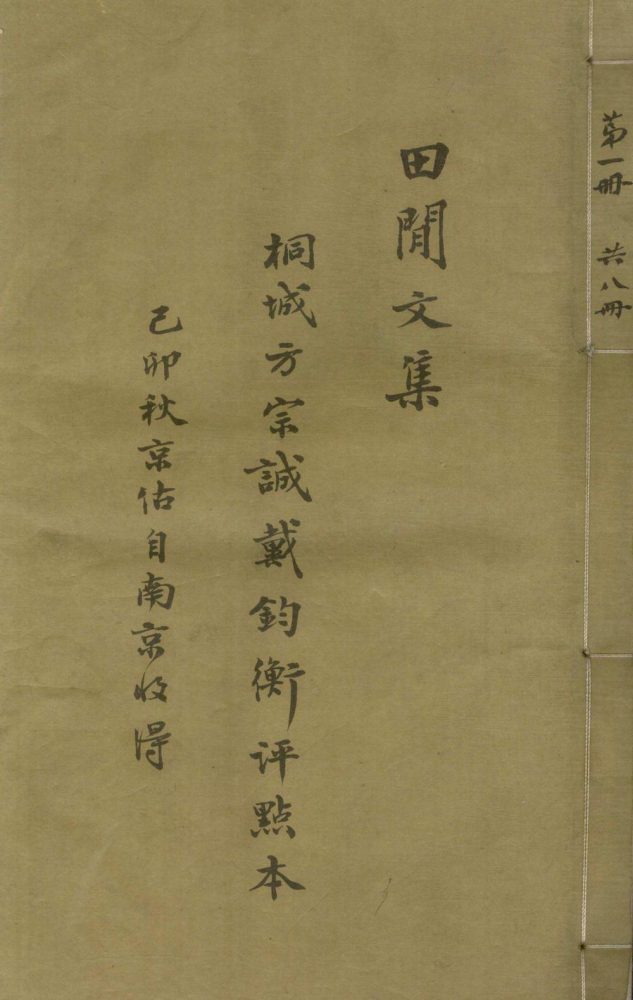 第一冊 共八冊
田間文集
桐城方宗誠戴鈞衡评點本
己卯秋京估自南京收得